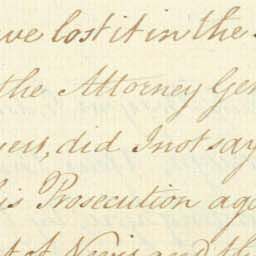 ve lost it in the
the Attorney Gen
vers, did I not say
is Prosecution aga
t of Nevis and th